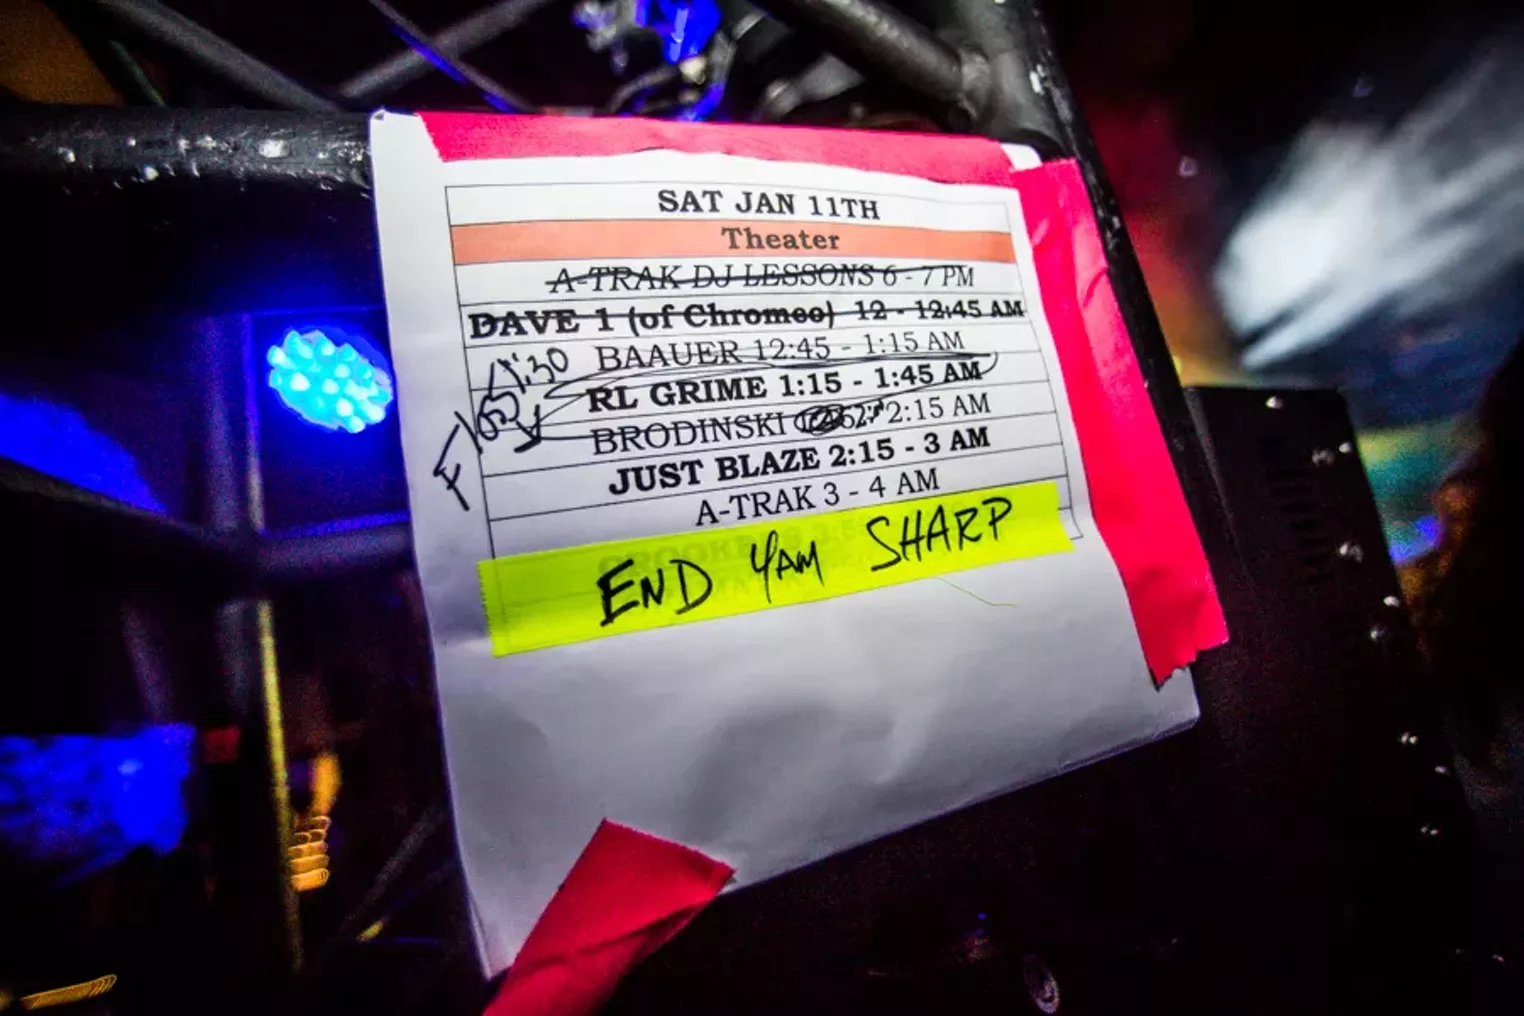 SAT JAN 11TH
Theater
A-TRAK DJ LESSONS 6 - 7 PM
DAVE 1 (of Chromeo) 12 - 12:45 AM
BAAUER 12:45 - 1:15 AM
1:30
RL GRIME 1:15 - 1:45 AM
BRODINSKI 2:15 AM
JUST BLAZE 2:15 - 3 AM
A-TRAK 3 - 4 AM
END 4AM SHARP